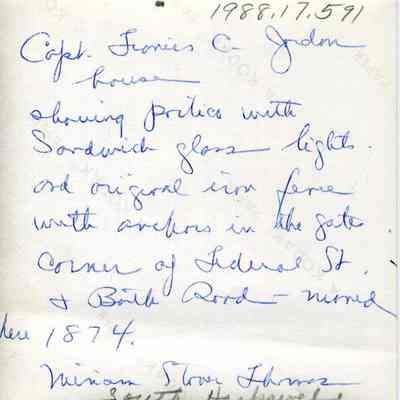 1988.17.591
Capt. Francis C. Jordan
house
showing portico with
Sandwich glass lights.
and original iron fence
with anchors in the gate
Corner of Federal St.
& Bath Road - moved
here 1874.
Miriam Stover Thomas
South Harpswell